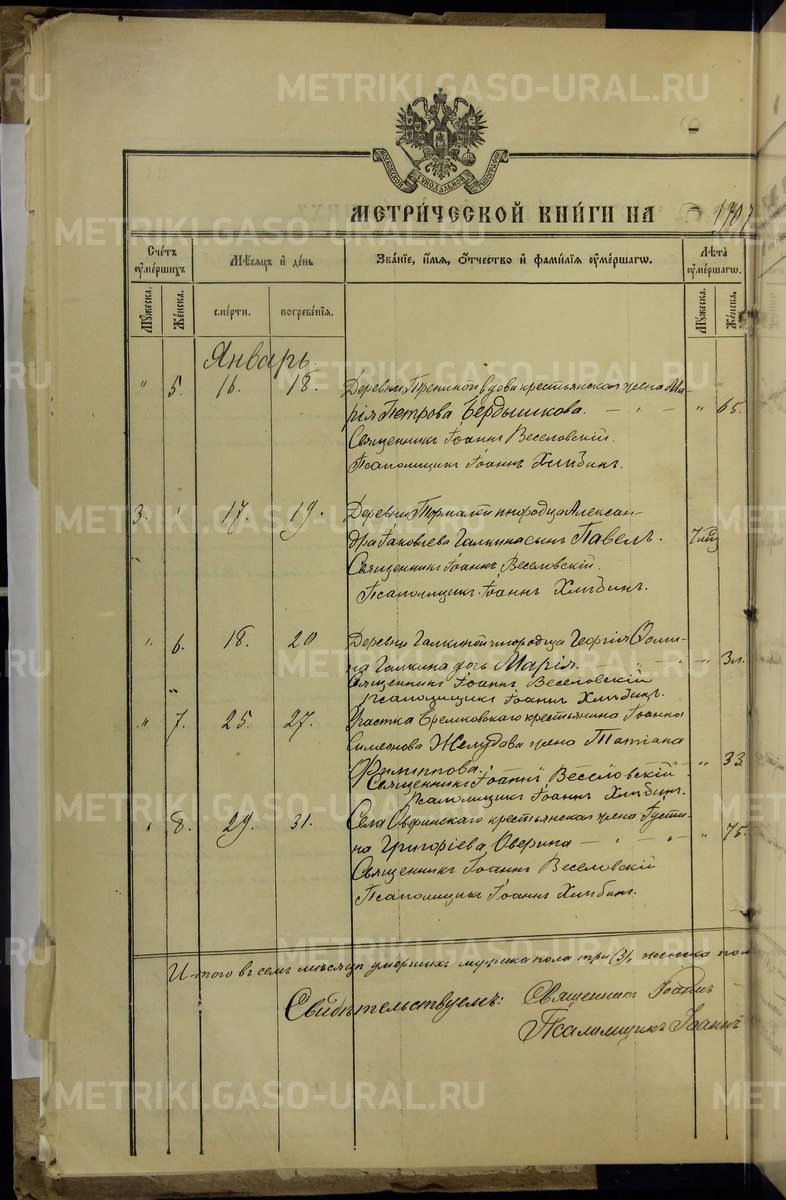 METRIKI.GASO-URAL.RU
МОСКОВСКОЙ СѴНОДАЛЬНОЙ ТИПОГРАФІИ
МЕТРИ́ЧЕСКОЙ КНИ́ГИ НА 1907
Сче́тъ ᲂу҆ме́ршихъ
Мѣ́сяцъ и҆ де́нь
Зва́нїе, и҆́мя, ѻ҆́тчество и҆ фами́лїя ᲂу҆ме́ршагѡ.
Лѣ́та ᲂу҆ме́ршагѡ.
Мꙋ́жеска.
Же́нска.
сме́рти.
погребе́нїя.
Мꙋ́жеска.
Же́нска.
Январь.
" 5. 16. 18. Деревни вдова крестьянская жена Ма-
рія Петрова Бердышкова. — " — " 65.
Священникъ Іоаннъ Веселовскій.
Псаломщикъ Іоаннъ Хлѣбинъ.
3. " 17. 19. Деревни инородца Алексан-
дра Іаковлева Галкина сынъ Павелъ. 7 мѣц
Священникъ Іоаннъ Веселовскій.
Псаломщикъ Іоаннъ Хлѣбинъ.
" 6. 18. 20 Деревни Галкиной инородца Георгія Ѳоми-
на Галкина дочь Марія. " — " 3 л.
Священникъ Іоаннъ Веселовскій
Псаломщикъ Іоаннъ Хлѣбинъ.
" 7. 25. 27. Участка крестьянина Іоанна
Симеонова Желудова жена Татіана
Филиппова. " 33
Священникъ Іоаннъ Веселовскій
Псаломщикъ Іоаннъ Хлѣбинъ.
" 8. 29. 31. Села Оверинскаго крестьянская жена Іусти-
на Григоріева Оверина — " — " — " 75.
Священникъ Іоаннъ Веселовскій
Псаломщикъ Іоаннъ Хлѣбинъ.
Итого въ семъ мѣсяцѣ умершихъ мужеска пола три (3), женска по
Свидѣтельствуемъ: Священникъ Іоаннъ
Псаломщикъ Іоаннъ